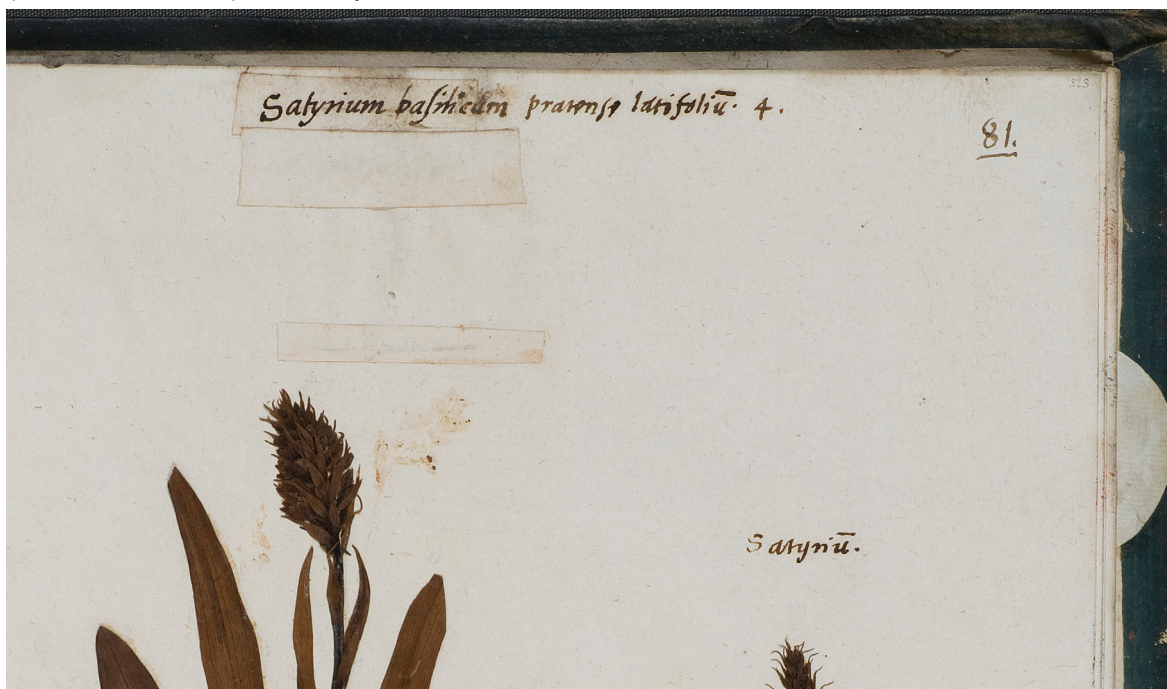 Satyrium basilicum pratense latifoliū. 4.
323
81.
Satyriū.